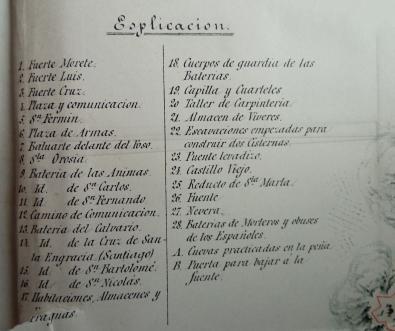 Esplicacion.
1. Fuerte Morete.
2. Fuerte Luis.
3. Fuerte Cruz.
4. Plaza y comunicacion.
5. Sⁿ Fermin.
6. Plaza de Armas.
7. Baluarte delante del Foso.
8. Sᵗᵃ Orosia.
9. Bateria de las Animas.
10. Id. de Sⁿ Carlos.
11. Id. de Sⁿ Fernando
12. Camino de Comunicacion.
13. Bateria del Calvario.
14. Id. de la Cruz de San-
ta Engracia (Santiago)
15. Id. de Sⁿ Bartolomé.
16. Id. de Sⁿ Nicolás.
17. Habitaciones, Almacenes y
Fraguas.
18. Cuerpos de guardia de las
Baterias.
19. Capilla y Cuarteles
20. Taller de Carpinteria.
21. Almacen de Viveres.
22. Escavaciones empezadas para
construir dos Cisternas.
23. Puente levadizo.
24. Castillo Viejo.
25. Reducto de Sᵗᵃ Marta.
26. Fuente
27. Nevera.
28. Baterias de Morteros y obuses
de los Españoles.
A. Cuevas practicadas en la peña.
B. Puerta para bajar á la
fuente.